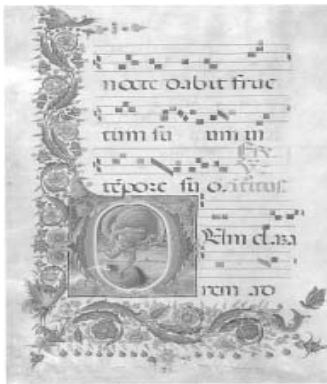 nocte dabit fruc
tum su um in
tēpore su o.
D Um clama
rem ad